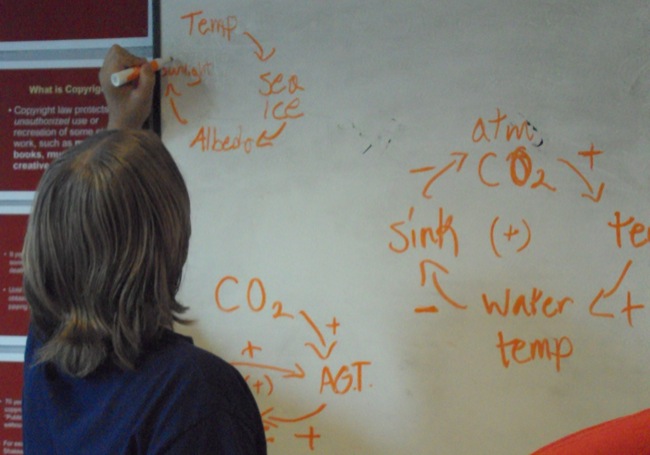 What is Copyrig
• Copyright law protects
unauthorized use or
recreation of some
work, such as
books,
creative
Temp
sea
ice
Albedo
sunlight
atm
CO2
+
te
+
water
temp
-
sink
-
(+)
CO2
+
A.G.T.
+
(+)
+